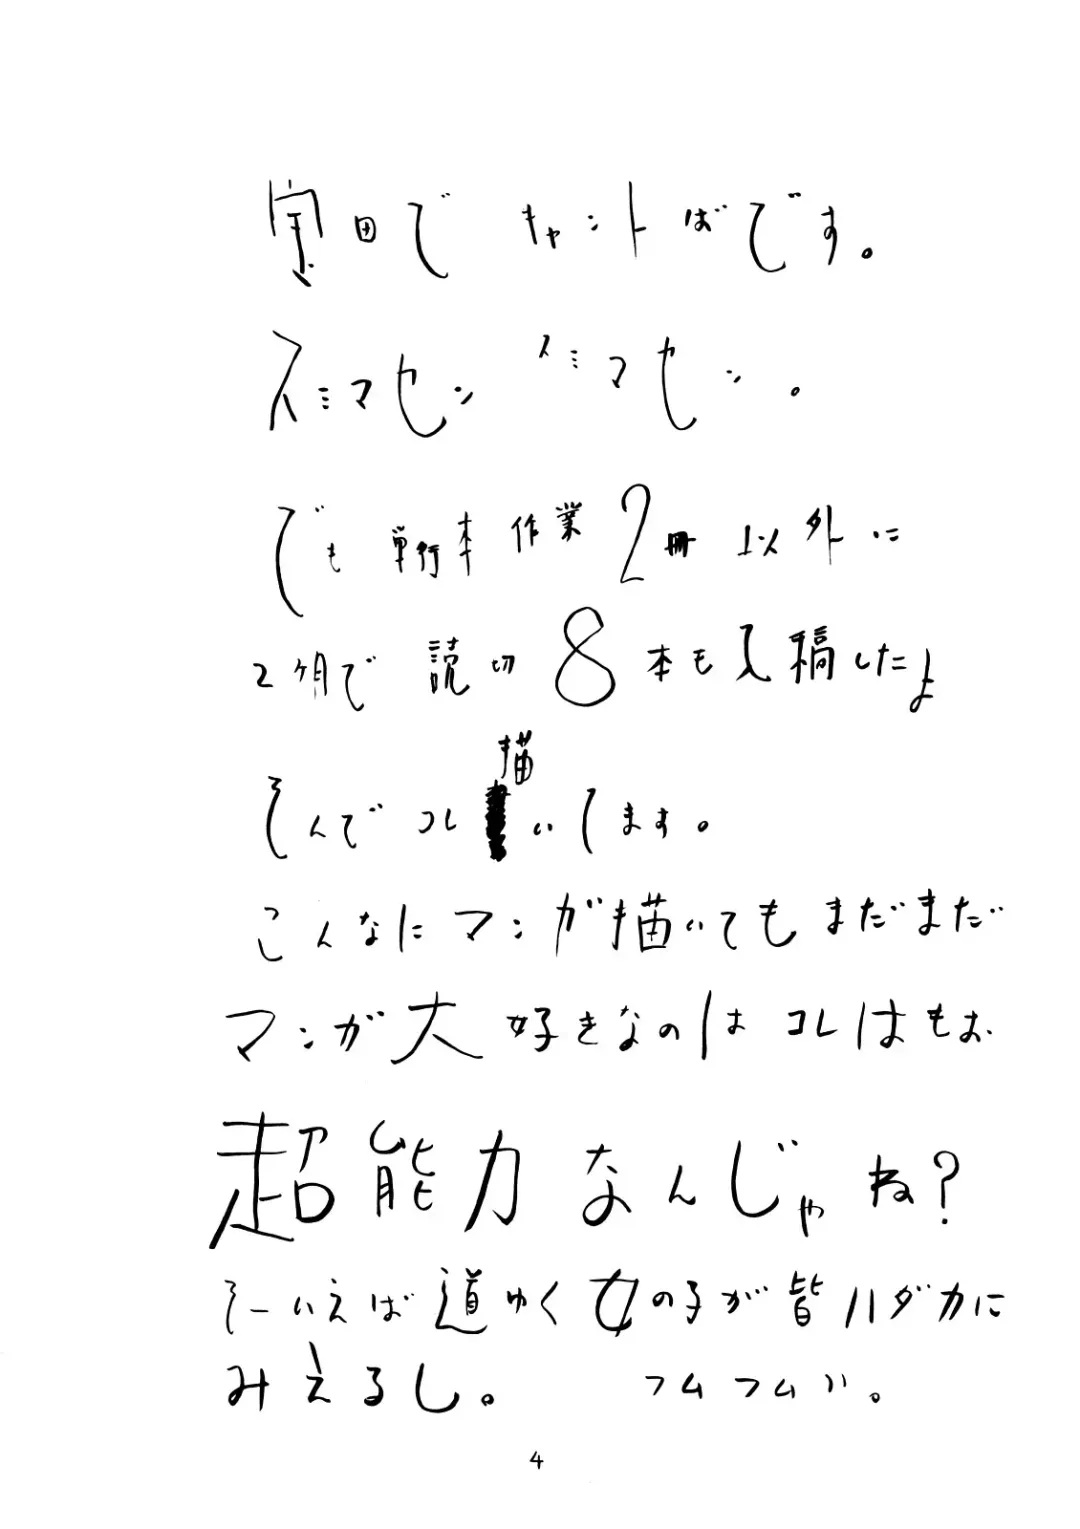 富田で キャントばです。
スミマセン スミマセン。
でも 単行本 作業 2冊 以外に
2ヶ月で 読切 8本も入稿したよ
そんでコレ描いてます。
こんなにマンガ描いてもまだまだ
マンガ大好きなのは コレはもお
超能力なんじゃね?
そーいえば道ゆく女の子が皆ハダカに
みえるし。 フムフムツ。
4